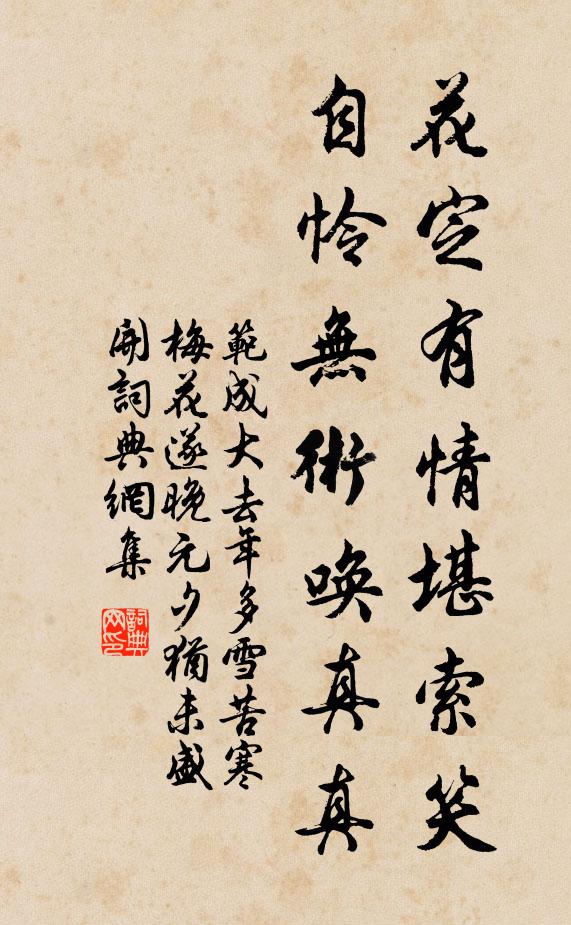 花定有情堪索笑
自怜無術唤真真
範成大去年多雪苦寒
梅花遂晚元夕猶未盛
開詞典網集
詞典网印